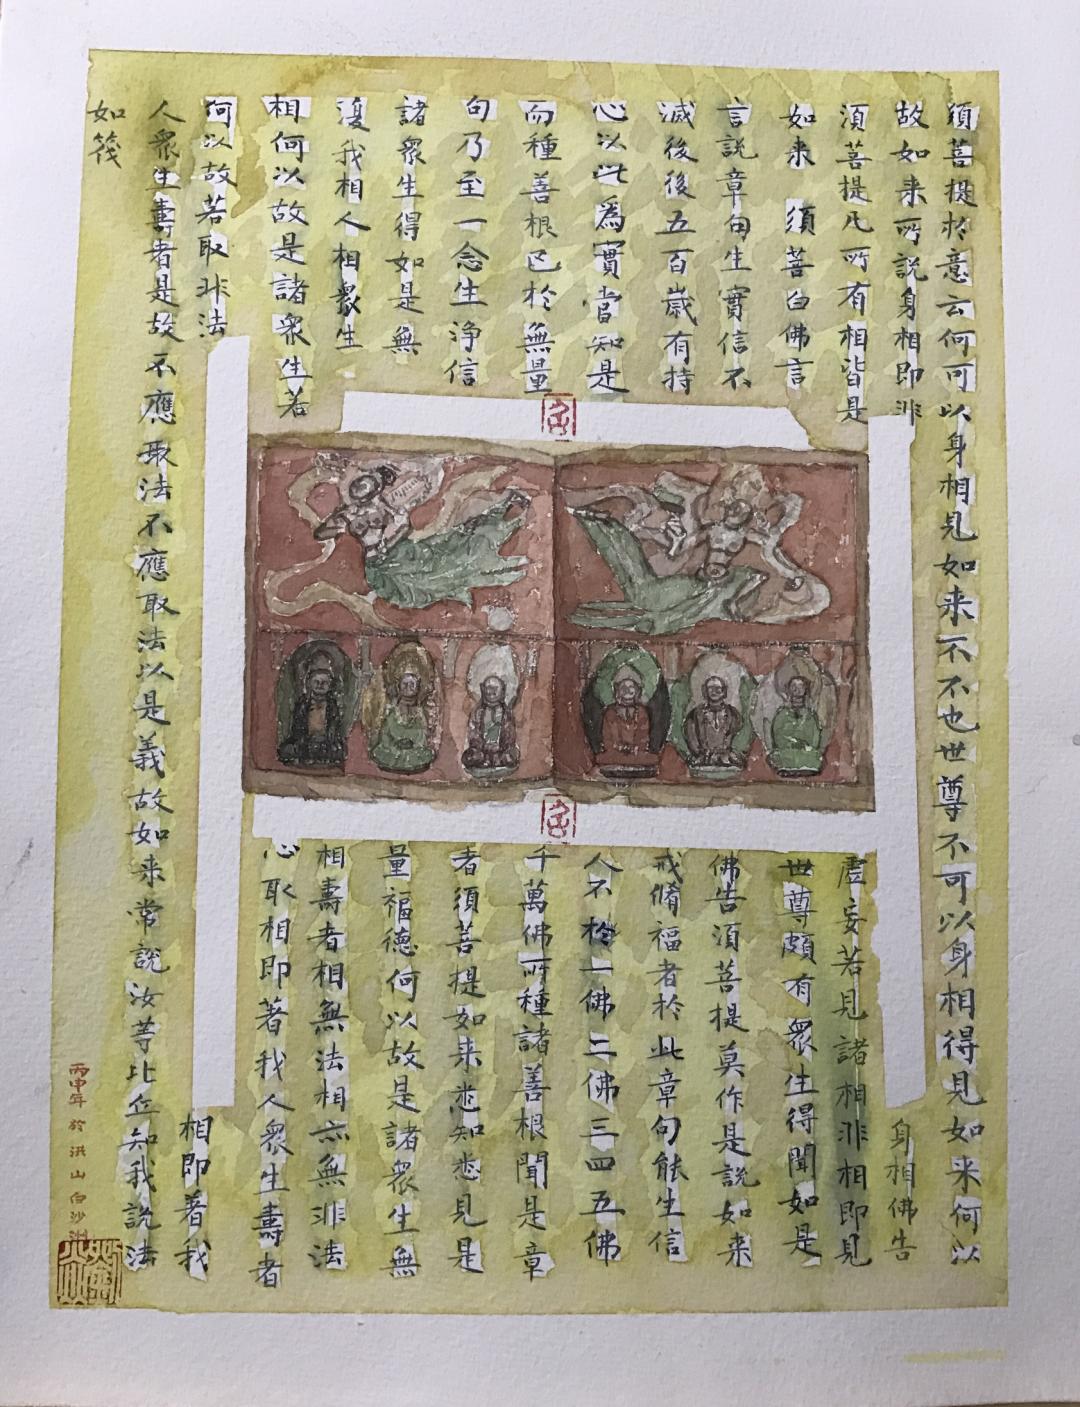 須菩提於意云何可以身相見如来不不也世尊不可以身相得見如来何以
故如来所説身相即非 身相佛告
須菩提凡所有相皆是 虚妄若見諸相非相即見
如来 須菩白佛言 世尊頗有衆生得聞如是
言説章句生實信不 佛告須菩提莫作是説如来
滅後後五百歳有持 戒脩福者於此章句能生信
心以此爲實當知是 人不於一佛二佛三四五佛
而種善根已於無量 千萬佛所種諸善根聞是章
句乃至一念生浄信 者須菩提如来悉知悉見是
諸衆生得如是無 量福德何以故是諸衆生無
復我相人相衆生 相壽者相無法相亦無非法
相何以故是諸衆生若 心取相即著我人衆生壽者
何以故若取非法 相即著我
人衆生壽者是故不應取法不應取法以是義故如来常説汝等比丘知我説法
如筏
丙申年 於 洪山白沙洲